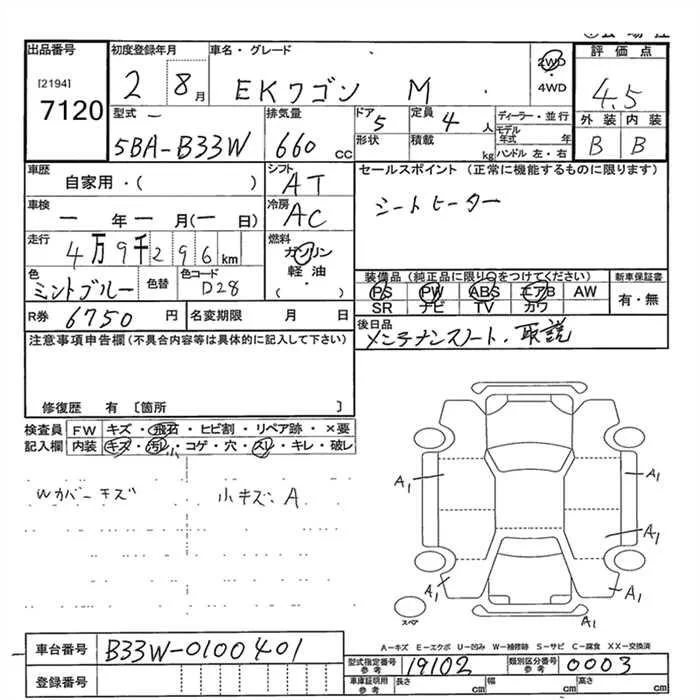 出品番号 初度登録年月 車名・グレード 評価点
[2194]
7120
2 8月 EKワゴン M 2WD・4WD 4.5
外装 内装
B B
型式 排気量 ドア 定員 ディーラー・並行
5BA-B33W 660cc 5 4人 モデル年式 年
形状 積載 kg ハンドル 左・右
車歴 シフト セールスポイント (正常に機能するものに限ります)
自家用・( ) AT
シートヒーター
車検 冷房
一年一月(一日) AC
走行 燃料
4万9千296km ガソリン・軽油・( )
色 色替 色コード
ミントブルー D28
装備品(純正品に限り○をつけてください) 新車保証書
PS PW ABS エアB AW 有・無
SR ナビ TV カワ
R券 6750円 名変期限 月 日
後日品
メンテナンスノート・取説
注意事項申告欄(不具合内容等は具体的に記入して下さい)
修復歴 有 〔箇所 〕
検査員 FW キズ・飛石・ヒビ割・リペア跡・×要
記入欄 内装 キズ・汚レ・コゲ・穴・スレ・キレ・破レ
Wカバーキズ 小キズ、A
A1 A1
A1
A1 A1
スペア
A1
A-キズ E-エクボ U-凹み W-補修跡 S-サビ C-腐食 XX-交換済
車台番号 B33W-0100401
型式指定番号 参考 19102 類別区分番号 参考 0003
登録番号
車庫証明用 参考 長さ cm 幅 cm 高さ cm